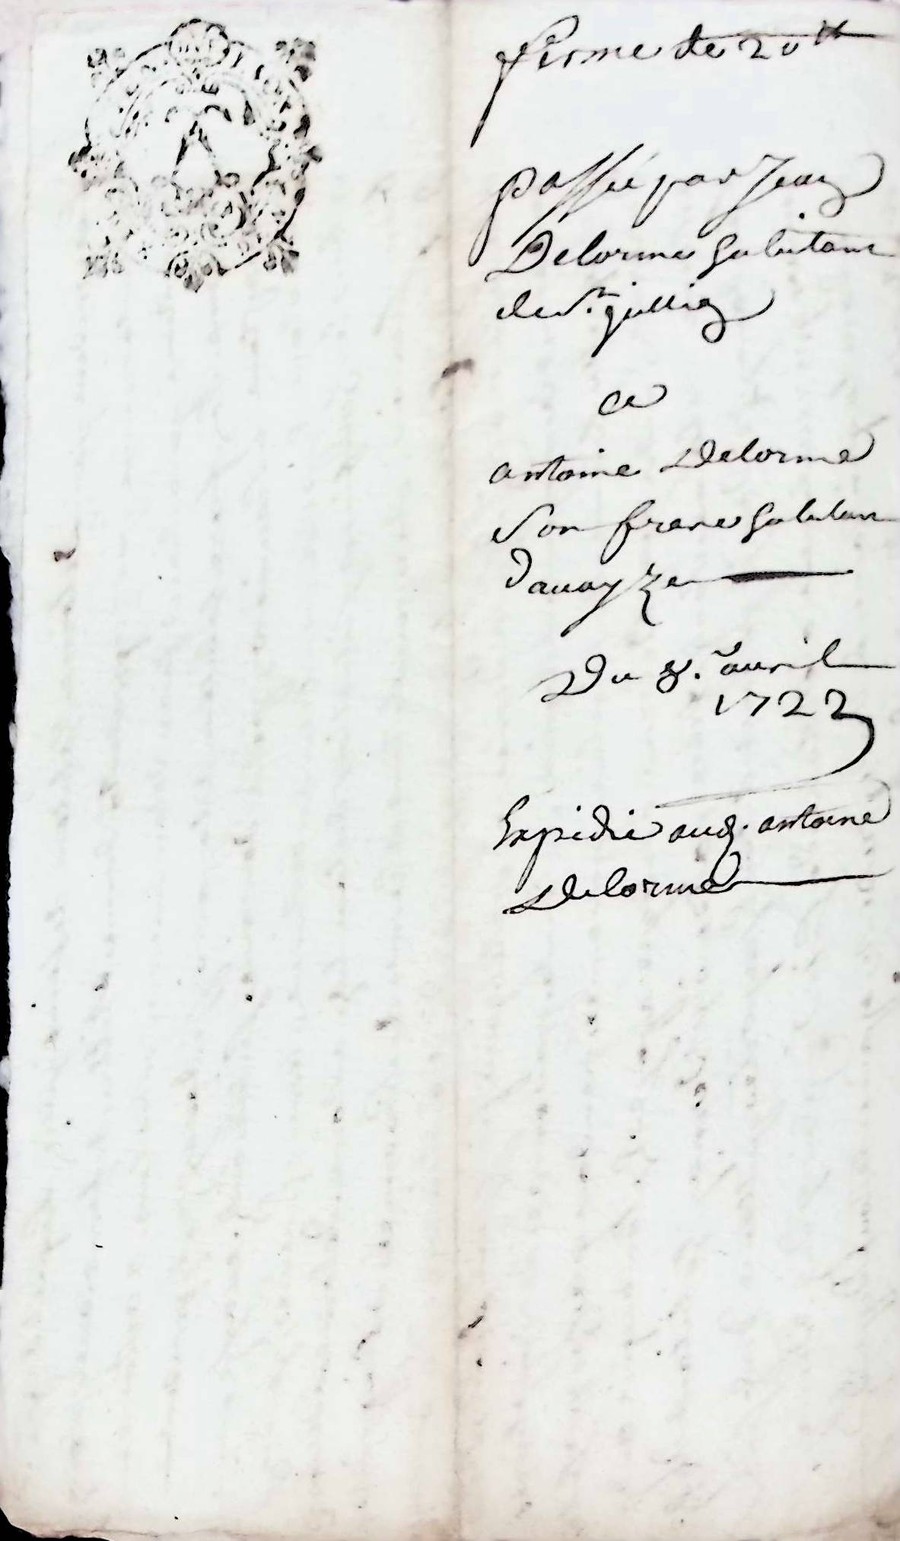 ferme de 20 tt
passé par Jean
Delorme habitant
de St. Jullien
a
antoine Delorme
son frere habitan
davayze
Du 8. avril
1722
Expedié aud. antoine
Delorme